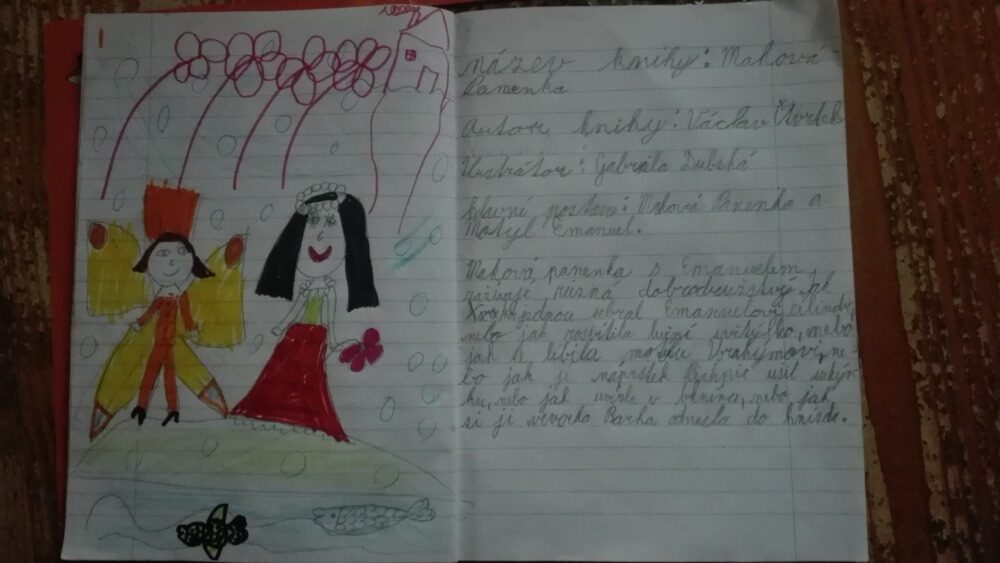 název knihy: Maková
Panenka
Autor knihy: Václav Čtvrtek
Ilustrátor: Gabriela Dubská
hlavní postava: Maková Panenka a
Motýl Emanuel.
Maková panenka s Emanuelem
různá dobrodružství, jak
jednou sebral Emanuelovi cilindr,
nebo jak rozsvítila lužné světýlko, nebo
jak se líbila motýlu ne-
bo jak jí naprstek ušil sukýn-
ku, nebo jak v nebo jak
si ji veverka Barka odnesla do hnízda.